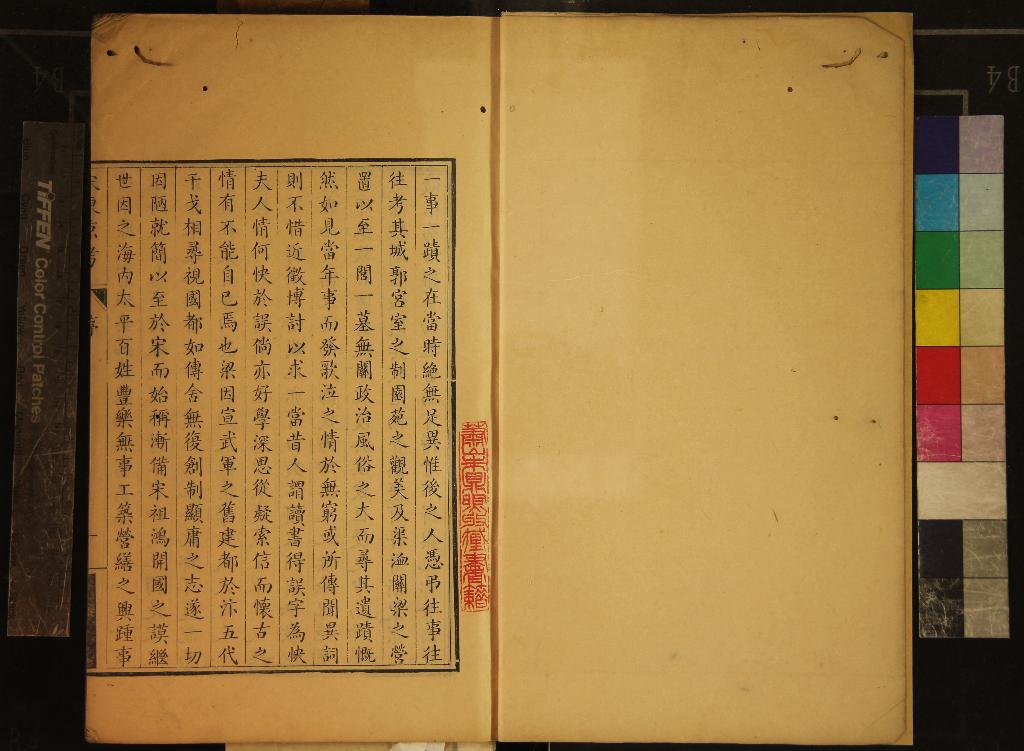 一事一蹟之在當時絶無足異惟後之人憑弔往事往
往考其城郭宮室之制園苑之觀美及渠洫關梁之營
置以至一閣一墓無關政治風俗之大而尋其遺蹟慨
然如見當年事而發歌泣之情於無窮或所傳聞異詞
則不惜近徵博討以求一當昔人謂讀書得誤字為快
夫人情何快於誤倘亦好學深思從疑索信而懷古之
情有不能自已焉也梁因宣武軍之舊建都於汴五代
干戈相尋視國都如傳舍無復創制顯庸之志遂一切
因陋就簡以至於宋而始稱漸備宋祖鴻開國之謨繼
世因之海內太平百姓豐樂無事工築營繕之興踵事
宋東京考
序
TIFFEN Color Control Patches
B4
B4